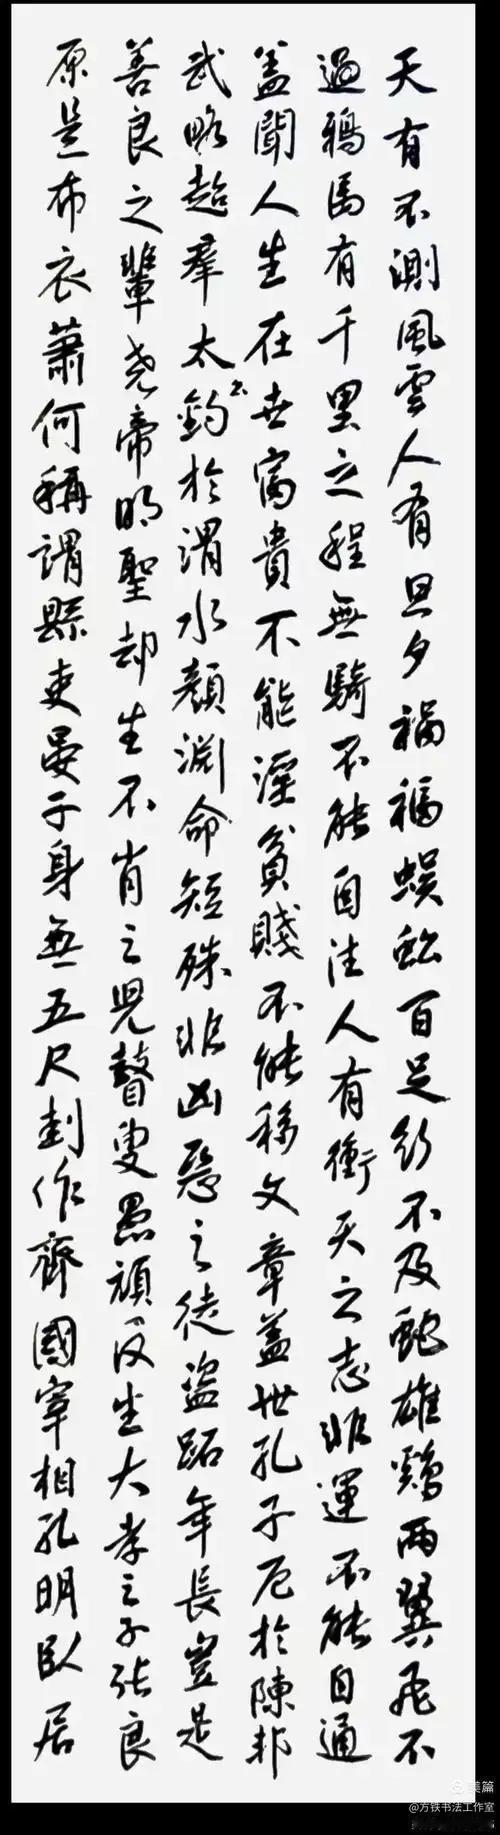 天有不測風雲人有旦夕禍福蜈蚣百足行不及蛇雄鷄兩翼飛不
過鴉馬有千里之程無騎不能自往人有衝天之志非運不能自通
盖聞人生在世富貴不能淫貧賤不能移文章盖世孔子厄於陳邦
武略超羣太公釣於渭水顏淵命短殊非凶惡之徒盜跖年長豈是
善良之輩尧帝明聖却生不肖之児瞽叟愚頑反生大孝之子張良
原是布衣蕭何稱謂縣吏晏子身無五尺封作齊國宰相孔明臥居
美篇
@方铁书法工作室